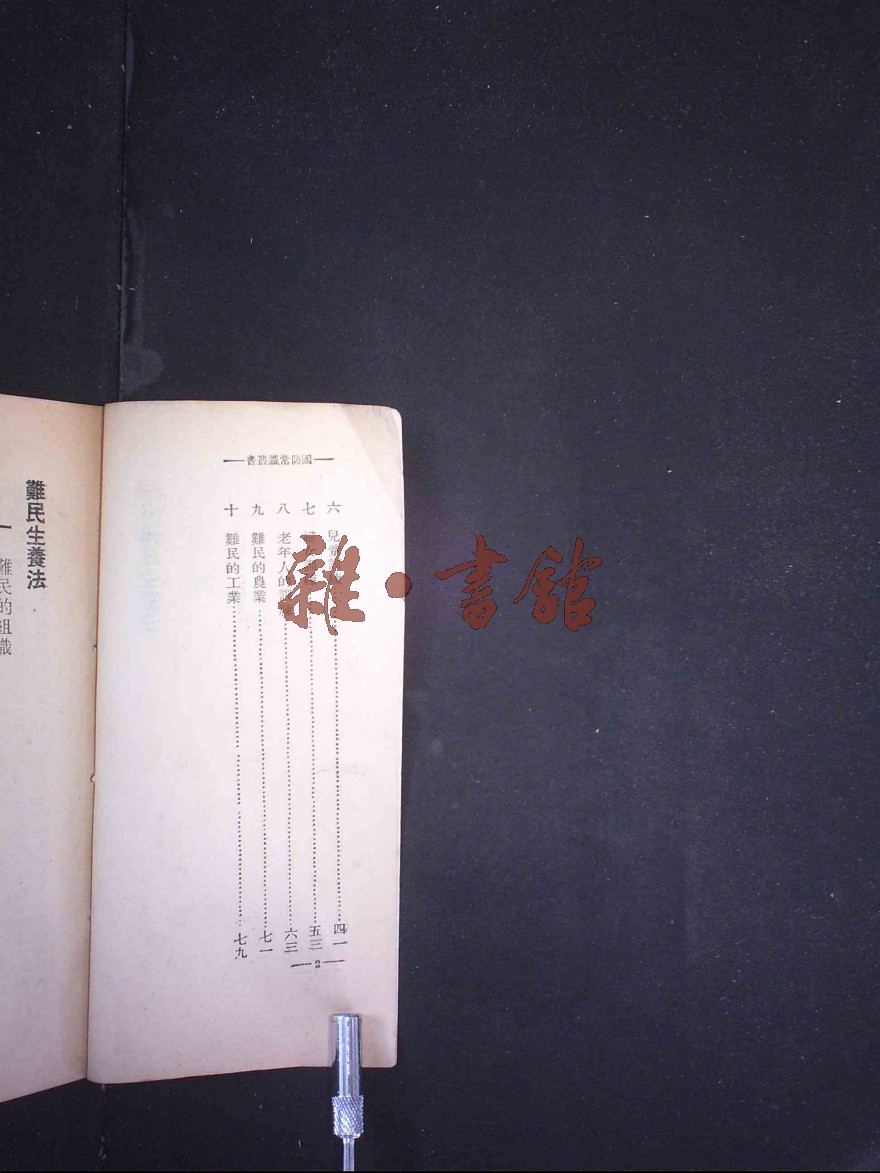 國防常識叢書
六 兒童 四一
七 五三
八 老年人的 六三
九 難民的農業 七一
十 難民的工業 七九
2
難民生養法
一 難民的組織
雜·書館